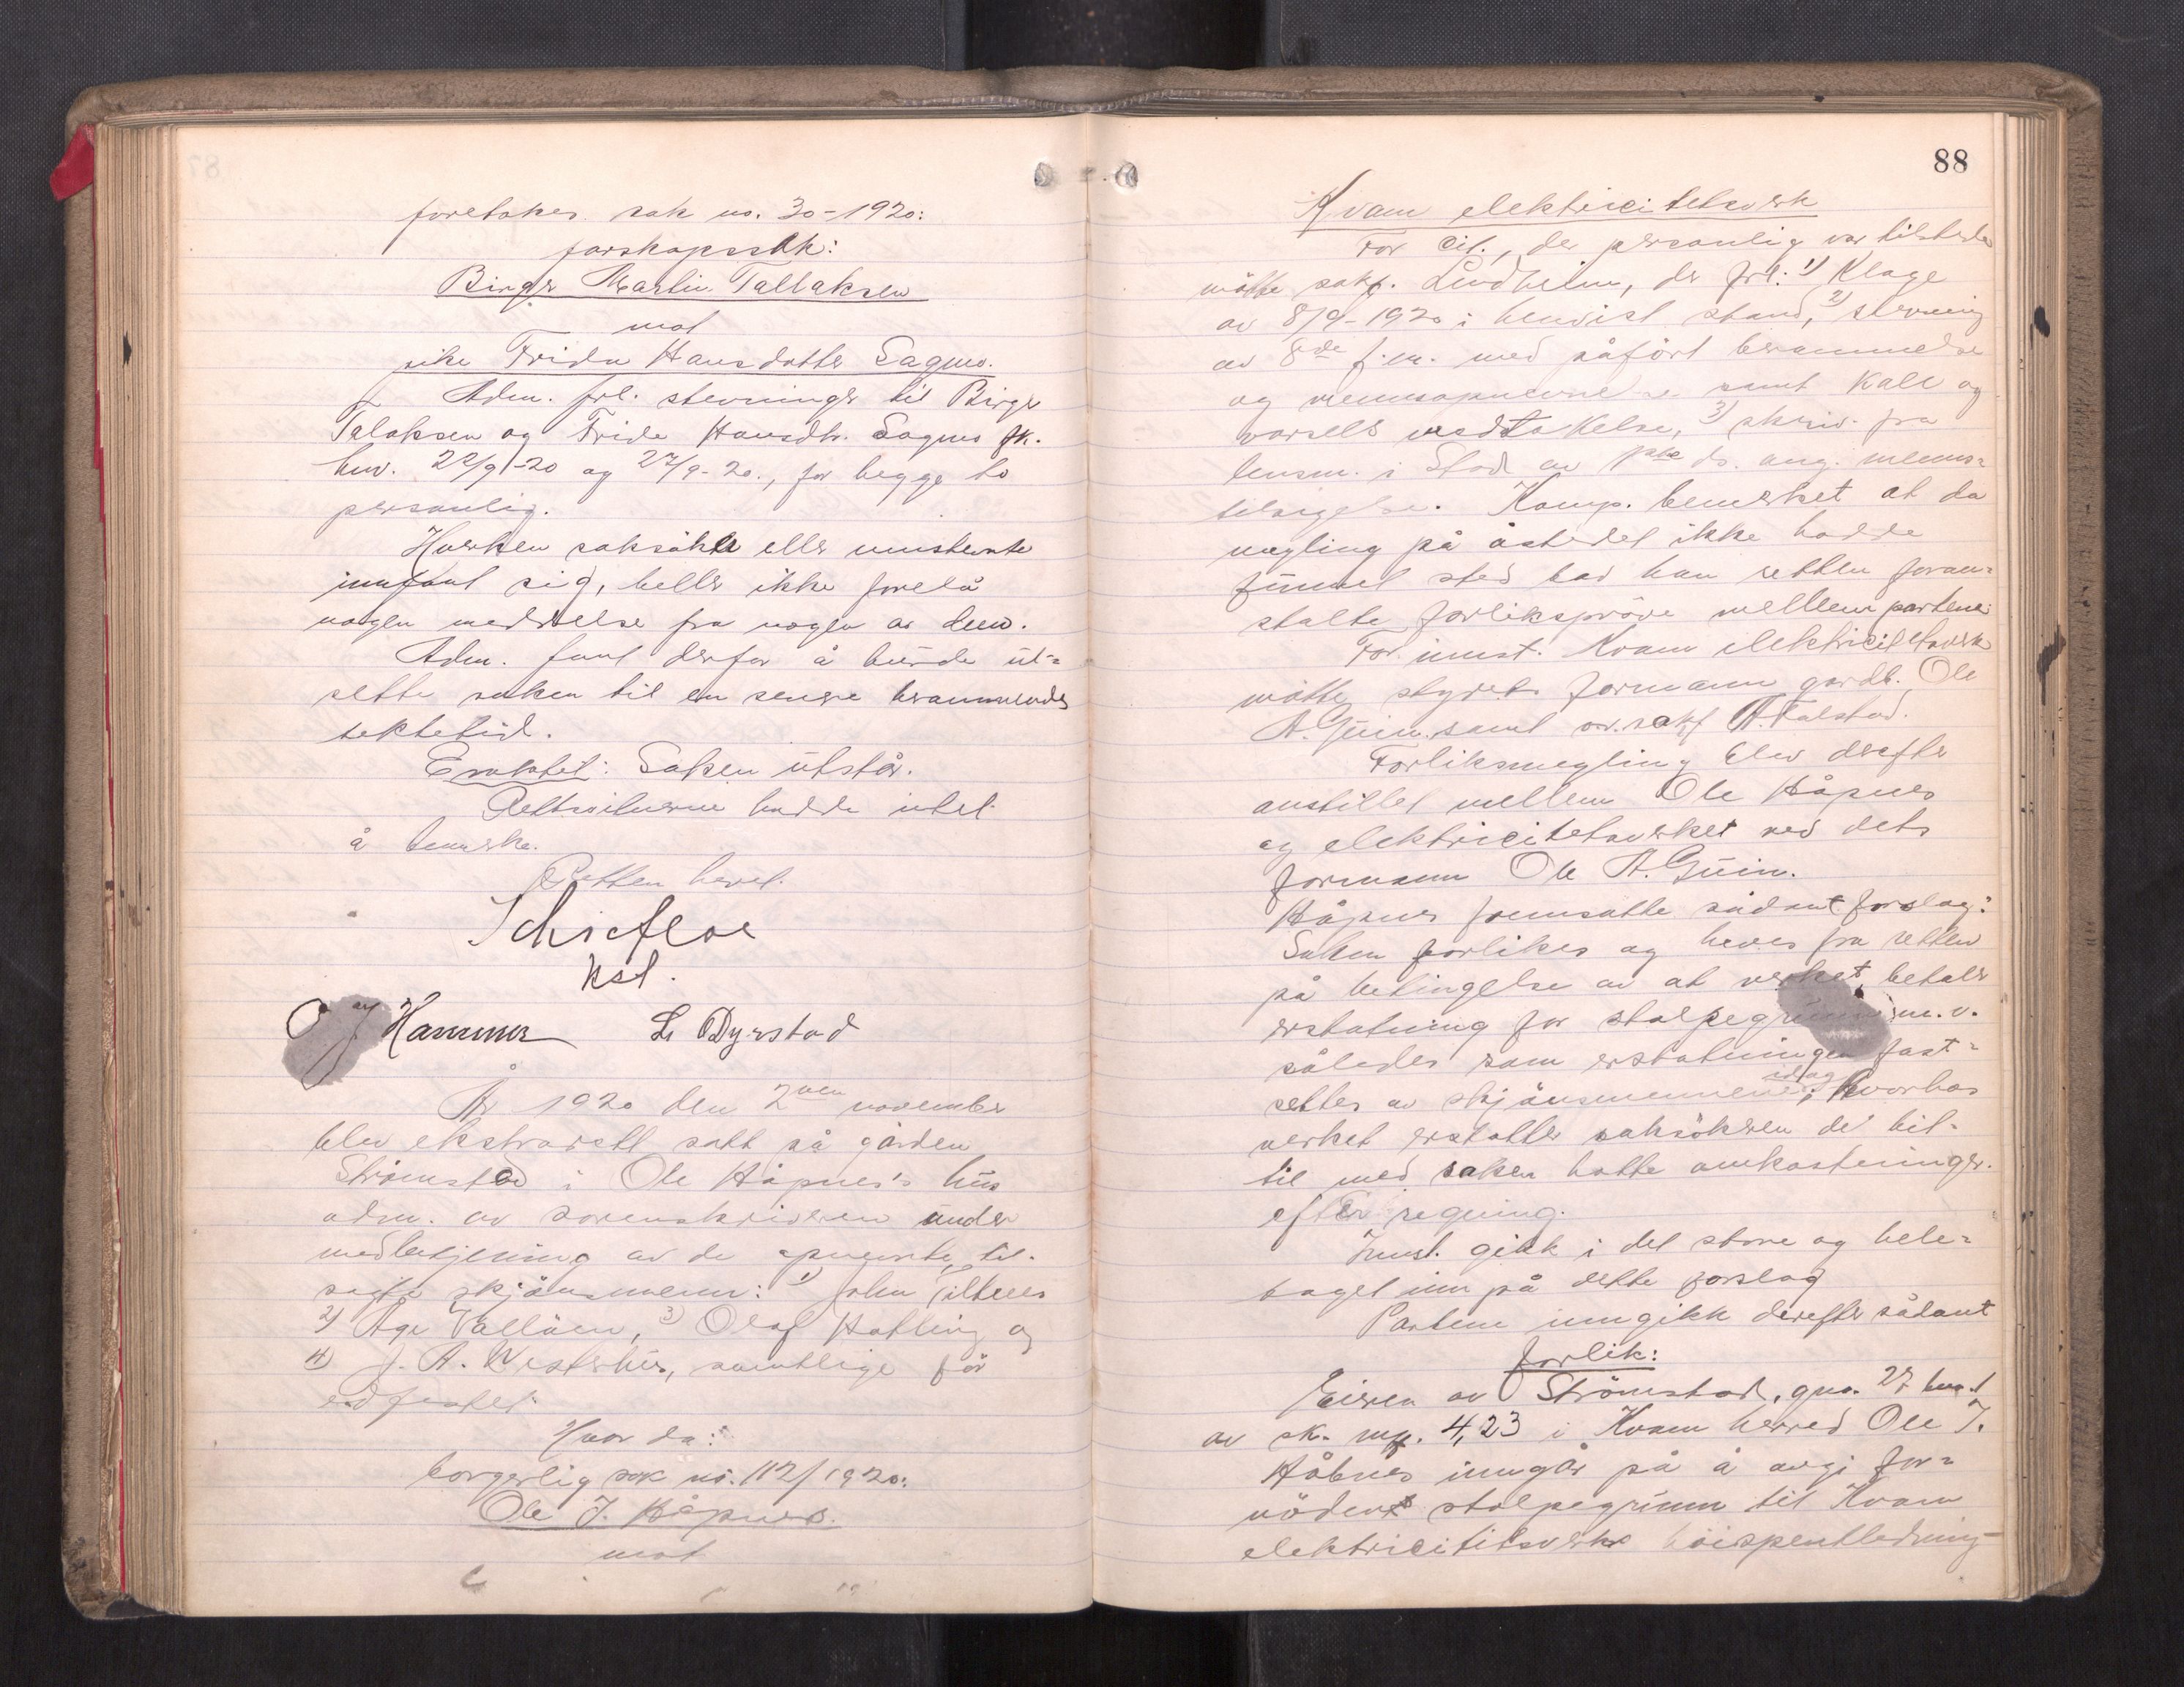 foretokes sak no. 30-1920:
farskapssak:
Birger Martin Tallaksen
mot
pike Frida Hansdatter Sagmo.
Adm. frl. stevninger til Birger
Talaksen og Frida Hansdtr. Sagmo fk.
henv. 22/9-20 og 27/9-20., for begge to
personlig.
Hverken saksökte eller innstevnte
innfant sig, heller ikke forelå
nogen meddelelse fra nogen av dem.
Adm. fant derfor å burde ut-
sette saken til en senere berammendes
tektetid.
Eraktet: Saken utstår.
Rettsvitnerne hadde intet
å bemerke.
Retten hevet.
Schiefloe
kst.
O J Hammer L Dyrstad
År 1920 den 2nen november
blev ekstrarett satt på gården
Strömstad i Ole Håpnes's hus
adm. av sorenskriveren under
medbetjening av de opnevnte, til-
sagte skjönsmenn: 1) John Tilterer
2) Åge Vallöen, 3) Olaf Hatling og
4) J. A. Westerhus, samtlige för
edfestet.
Hvor da:
borgerlig sak no. 112/1920:
Ole J. Håpnes.
mot
88
Kvam elektricitetsverk
For cit., der personlig var tilstede
mötte sakf. Lindheim, der frl: 1) Klage
av 8/9-1920 i henvist stand, 2) stevning
av 8de f.m. med påfört berammelse
og mennsopnevnelse samt kall og
varsels vedtakelse, 3) skriv. fra
lensm. i Stod av 1ste ds. ang. menns-
tilsigelse. Komp. bemerket at da
megling på åstedet ikke hadde
funnet sted bad han retten foran-
stalte forlikspröve mellem partene
For innst. Kvam elektricitetsverk
mötte styrets formann gardb. Ole
A. Guin samt o.r.sakf A. Falstad.
Forliksmegling blev derefter
anstillet mellem Ole Håpnes
og elektricitetsverket ved dets
formann Ole A. Guin.
Håpnes fremsatte sådant forslag:
Saken forlikes og heves fra retten
på betingelse av at verket betaler
erstatning for stolpegrunn m.v.
således som erstatningen fast-
settes av skjönsmennene idag; hvorhos
verket erstatter saksökeren de hit-
til med saken hatte omkostninger.
efter regning.
Innst. gikk i det store og hele-
taget inn på dette forslag
Partene inngikk derefter sådant
forlik:
Eieren av Strömstad, gno. 27 bno. 1
av sk. m. 4,23 i Kvam herred Ole J.
Håbnes inngår på å avgi for-
nöden stolpegrunn til Kvam
elektricitetsverks höispentledning-